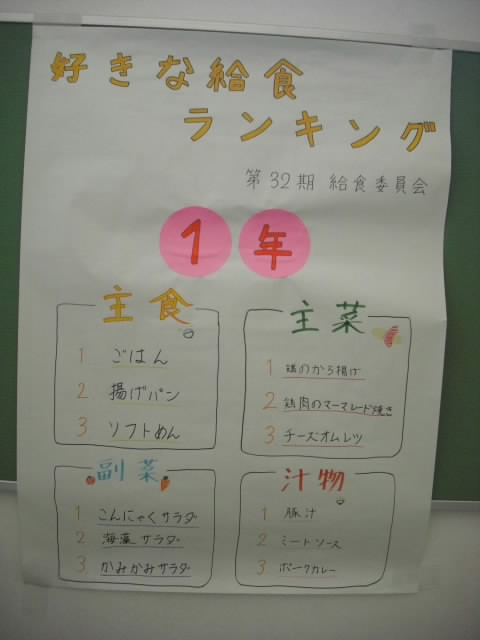 好きな給食
ランキング
第32期 給食委員会
1年
主食
1 ごはん
2 揚げパン
3 ソフトめん
主菜
1 鶏のから揚げ
2 鶏肉のマーマレード焼き
3 チーズオムレツ
副菜
1 こんにゃくサラダ
2 海藻サラダ
3 かみかみサラダ
汁物
1 豚汁
2 ミートソース
3 ポークカレー